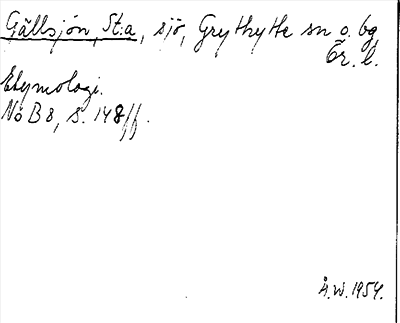 Gällsjön, St:a, sjö, Grythytte sn o. bg
Ör. l.
Etymologi.
NoB 8, s. 148 ff.
Å.W. 1954.